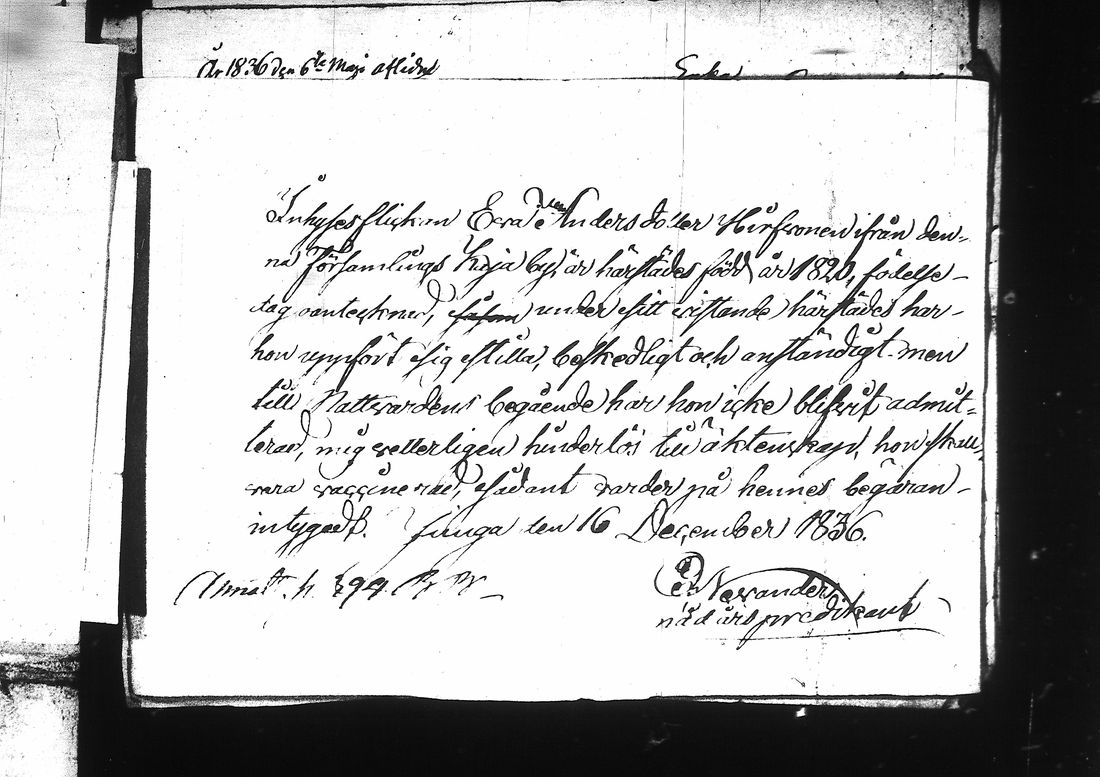 År 1836 den 6te Maji afledne Enka
Inhyses flickan Eva Andersdoter Hirfvonen ifrån den-
na församlings Kuja by, är härstädes född år 1820, födelse-
dag oantecknad, såsom under sitt vistande härstädes har-
hon uppfört sig stilla, beskedligt och anständigt men
till Nattvardens begående har hon icke blifvit admit-
terad, mig vetterligen hinderlös till äktenskap, hon skall
vara vaccinerad, sådant varder på hennes begäran-
intygadt. Jiunga den 16 December 1836.
Anmält. h 399.
nådårs predikant